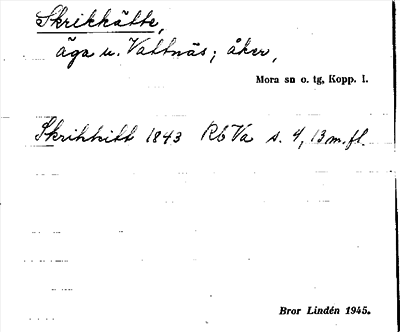 Skrikkätte,
äga u. Vattnäs; åker,
Mora sn o. tg, Kopp. l.
Skrikkitt 1843 Rb Va s. 4, 13 m.fl.
Bror Lindén 1945.